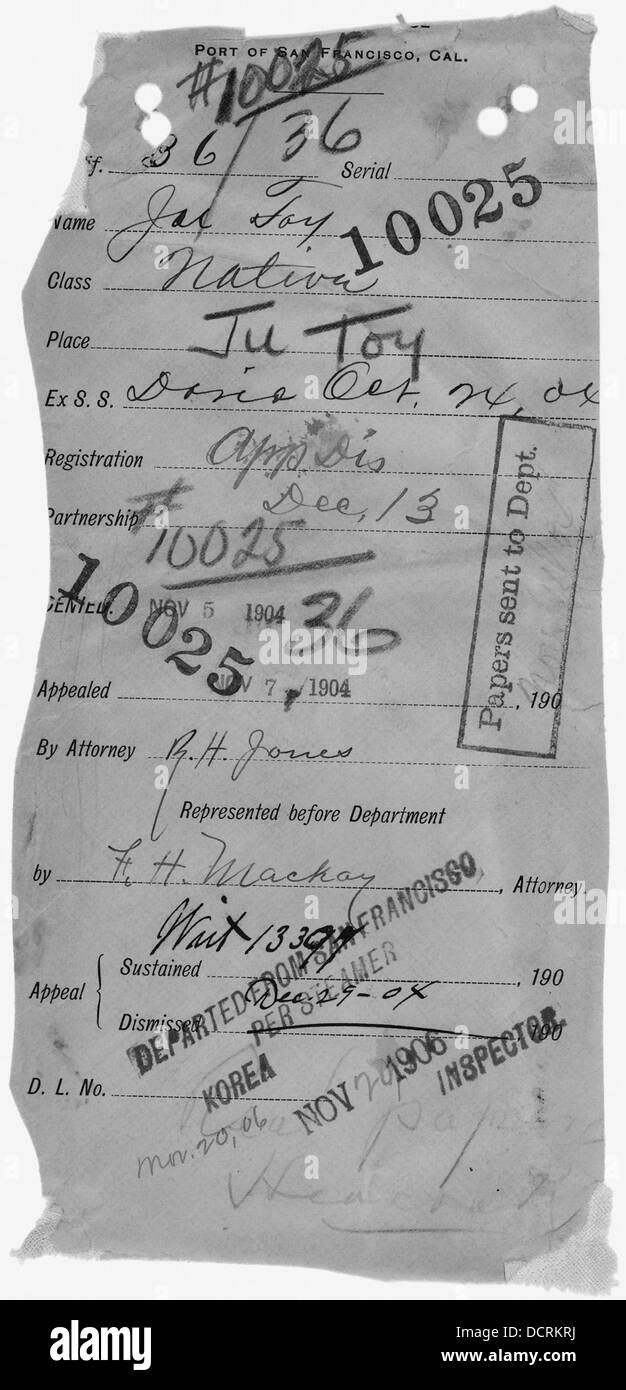 PORT OF SAN FRANCISCO, CAL.
#10025
36/36
f. Serial
Name Joe Toy
10025
Class Native
Place Ju Toy
Ex S. S. Doric Oct. 24, 04
Registration App. Dis
Partnership Dec, 13
#10025
DENIED. NOV 5 1904 36
10025
Appealed NOV 7, 1904 , 190
Papers sent to Dept.
By Attorney R. H. Jones
Represented before Department
by F. H. Mackay , Attorney.
Writ 13394
Appeal
Sustained , 190
Dismissed Dec. 29-04 190
DEPARTED FROM SAN FRANCISCO
PER STEAMER
KOREA NOV 20 1906
INSPECTOR.
D. L. No.
Nov. 20, 06
alamy
Image ID: DCRKRJ
www.alamy.com